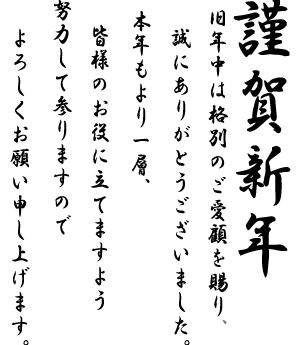 謹賀新年
旧年中は格別のご愛顧を賜り、
誠にありがとうございました。
本年もより一層、
皆様のお役に立てますよう
努力して参りますので
よろしくお願い申し上げます。